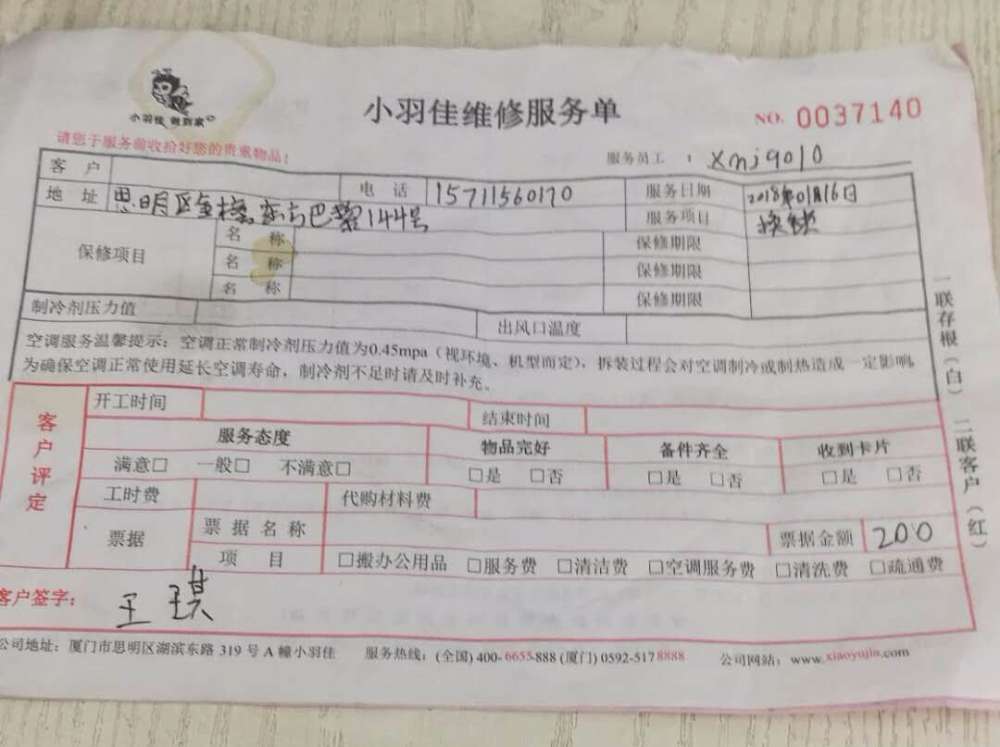 小羽佳 做到家
小羽佳维修服务单
NO. 0037140
请您于服务前收拾好您的贵重物品!
服务员工 : xmj9010
客户 电话 15711560170 服务日期 2018年01月16日
地址 思明区 巴黎144号 服务项目 换锁
保修项目 名称 保修期限
名称 保修期限
名称 保修期限
制冷剂压力值 出风口温度
空调服务温馨提示: 空调正常制冷剂压力值为0.45mpa (视环境、机型而定), 拆装过程会对空调制冷或制热造成一定影响,
为确保空调正常使用延长空调寿命, 制冷剂不足时请及时补充。
一联存根(白) 二联客户(红)
客户评定
开工时间 结束时间
服务态度 物品完好 备件齐全 收到卡片
满意□ 一般□ 不满意□ □是 □否 □是 □否 □是 □否
工时费 代购材料费
票据 票据名称 票据金额 200
项目 □搬办公用品 □服务费 □清洁费 □空调服务费 □清洗费 □疏通费
客户签字: 王琪
公司地址: 厦门市思明区湖滨东路 319 号 A 幢小羽佳 服务热线: (全国) 400-6655-888 (厦门) 0592-5178888 公司网站: www.xiaoyujia.com